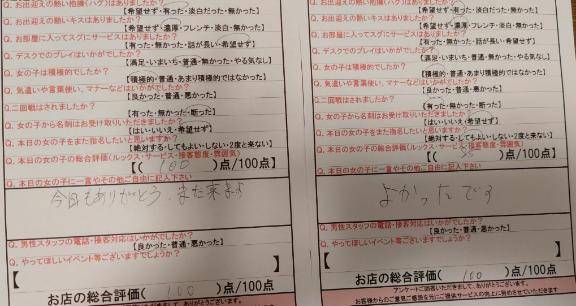 Q. お出迎えの熱い抱擁(ハグ)はありましたか?
【希望せず・有った・淡白だった・無かった】
Q. お出迎えの熱いキスはありましたか?
【希望せず・濃厚・フレンチ・淡白・無かった】
Q. お部屋に入ってスグにサービスはありましたか?
【有った・無かった・話が長い・希望せず】
Q. デスクでのプレイはいかがでしたか?
【満足・いまいち・普通・無かった・やる気なし】
Q. 女の子は積極的でしたか?
【積極的・普通・あまり積極的ではなかった】
Q. 気遣いや言葉使い、マナーなどはいかがでしたか?
【良かった・普通・悪かった】
Q. 二回戦はされましたか?
【有った・無かった・断った】
Q. 女の子から名刺はお受け取りいただきましたか?
【はい・いいえ・希望せず】
Q. 本日の女の子をまた指名したいと思いますか?
【絶対する・してもよい・しない・2度と来ない】
Q. 本日の女の子の総合評価(ルックス・サービス・接客態度・雰囲気)
【( 100 )点/100点】
Q. 本日の女の子に一言やその他ご自由に記入下さい
今日もありがとう。また来ます
Q. 男性スタッフの電話・接客対応はいかがでしたか?
【良かった・普通・悪かった】
Q. やってほしいイベント等ございますでしょうか?
【
お店の総合評価( 100 )点/100点
アンケートにご回答いただきまして、ありがとうございます。
お出迎えの熱い抱擁(ハグ)はありましたか?
【希望せず・有った・淡白・無かった】
Q. お出迎えの熱いキスはありましたか?
【希望せず・濃厚・フレンチ・淡白・無かった】
Q. お部屋に入ってスグにサービスはありましたか?
【有った・無かった・話が長い・希望せず】
Q. デスクでのプレイはいかがでしたか?
【満足・いまいち・普通・無かった・やる気なし】
Q. 女の子は積極的でしたか?
【積極的・普通・あまり積極的ではなかった】
Q. 気遣いや言葉使い、マナーなどはいかがでしたか?
【良かった・普通・悪かった】
Q. 二回戦はされましたか?
【有った・無かった・断った】
Q. 女の子から名刺はお受け取りいただきましたか?
【はい・いいえ・希望せず】
Q. 本日の女の子をまた指名したいと思いますか?
【絶対する・してもよい・しない・2度と来ない】
Q. 本日の女の子の総合評価(ルックス・サービス・接客態度・雰囲気)
【( )点/100点】
Q. 本日の女の子に一言やその他ご自由に記入下さい
よかったです
Q. 男性スタッフの電話・接客対応はいかがでしたか?
【良かった・普通・悪かった】
Q. やってほしいイベント等ございますでしょうか?
【 】
お店の総合評価( 100 )点/100点
アンケートにご回答いただきまして、ありがとうございます。
お客様からのご意見ご感想を元にご提供サービスの向上に努めさせていただきます